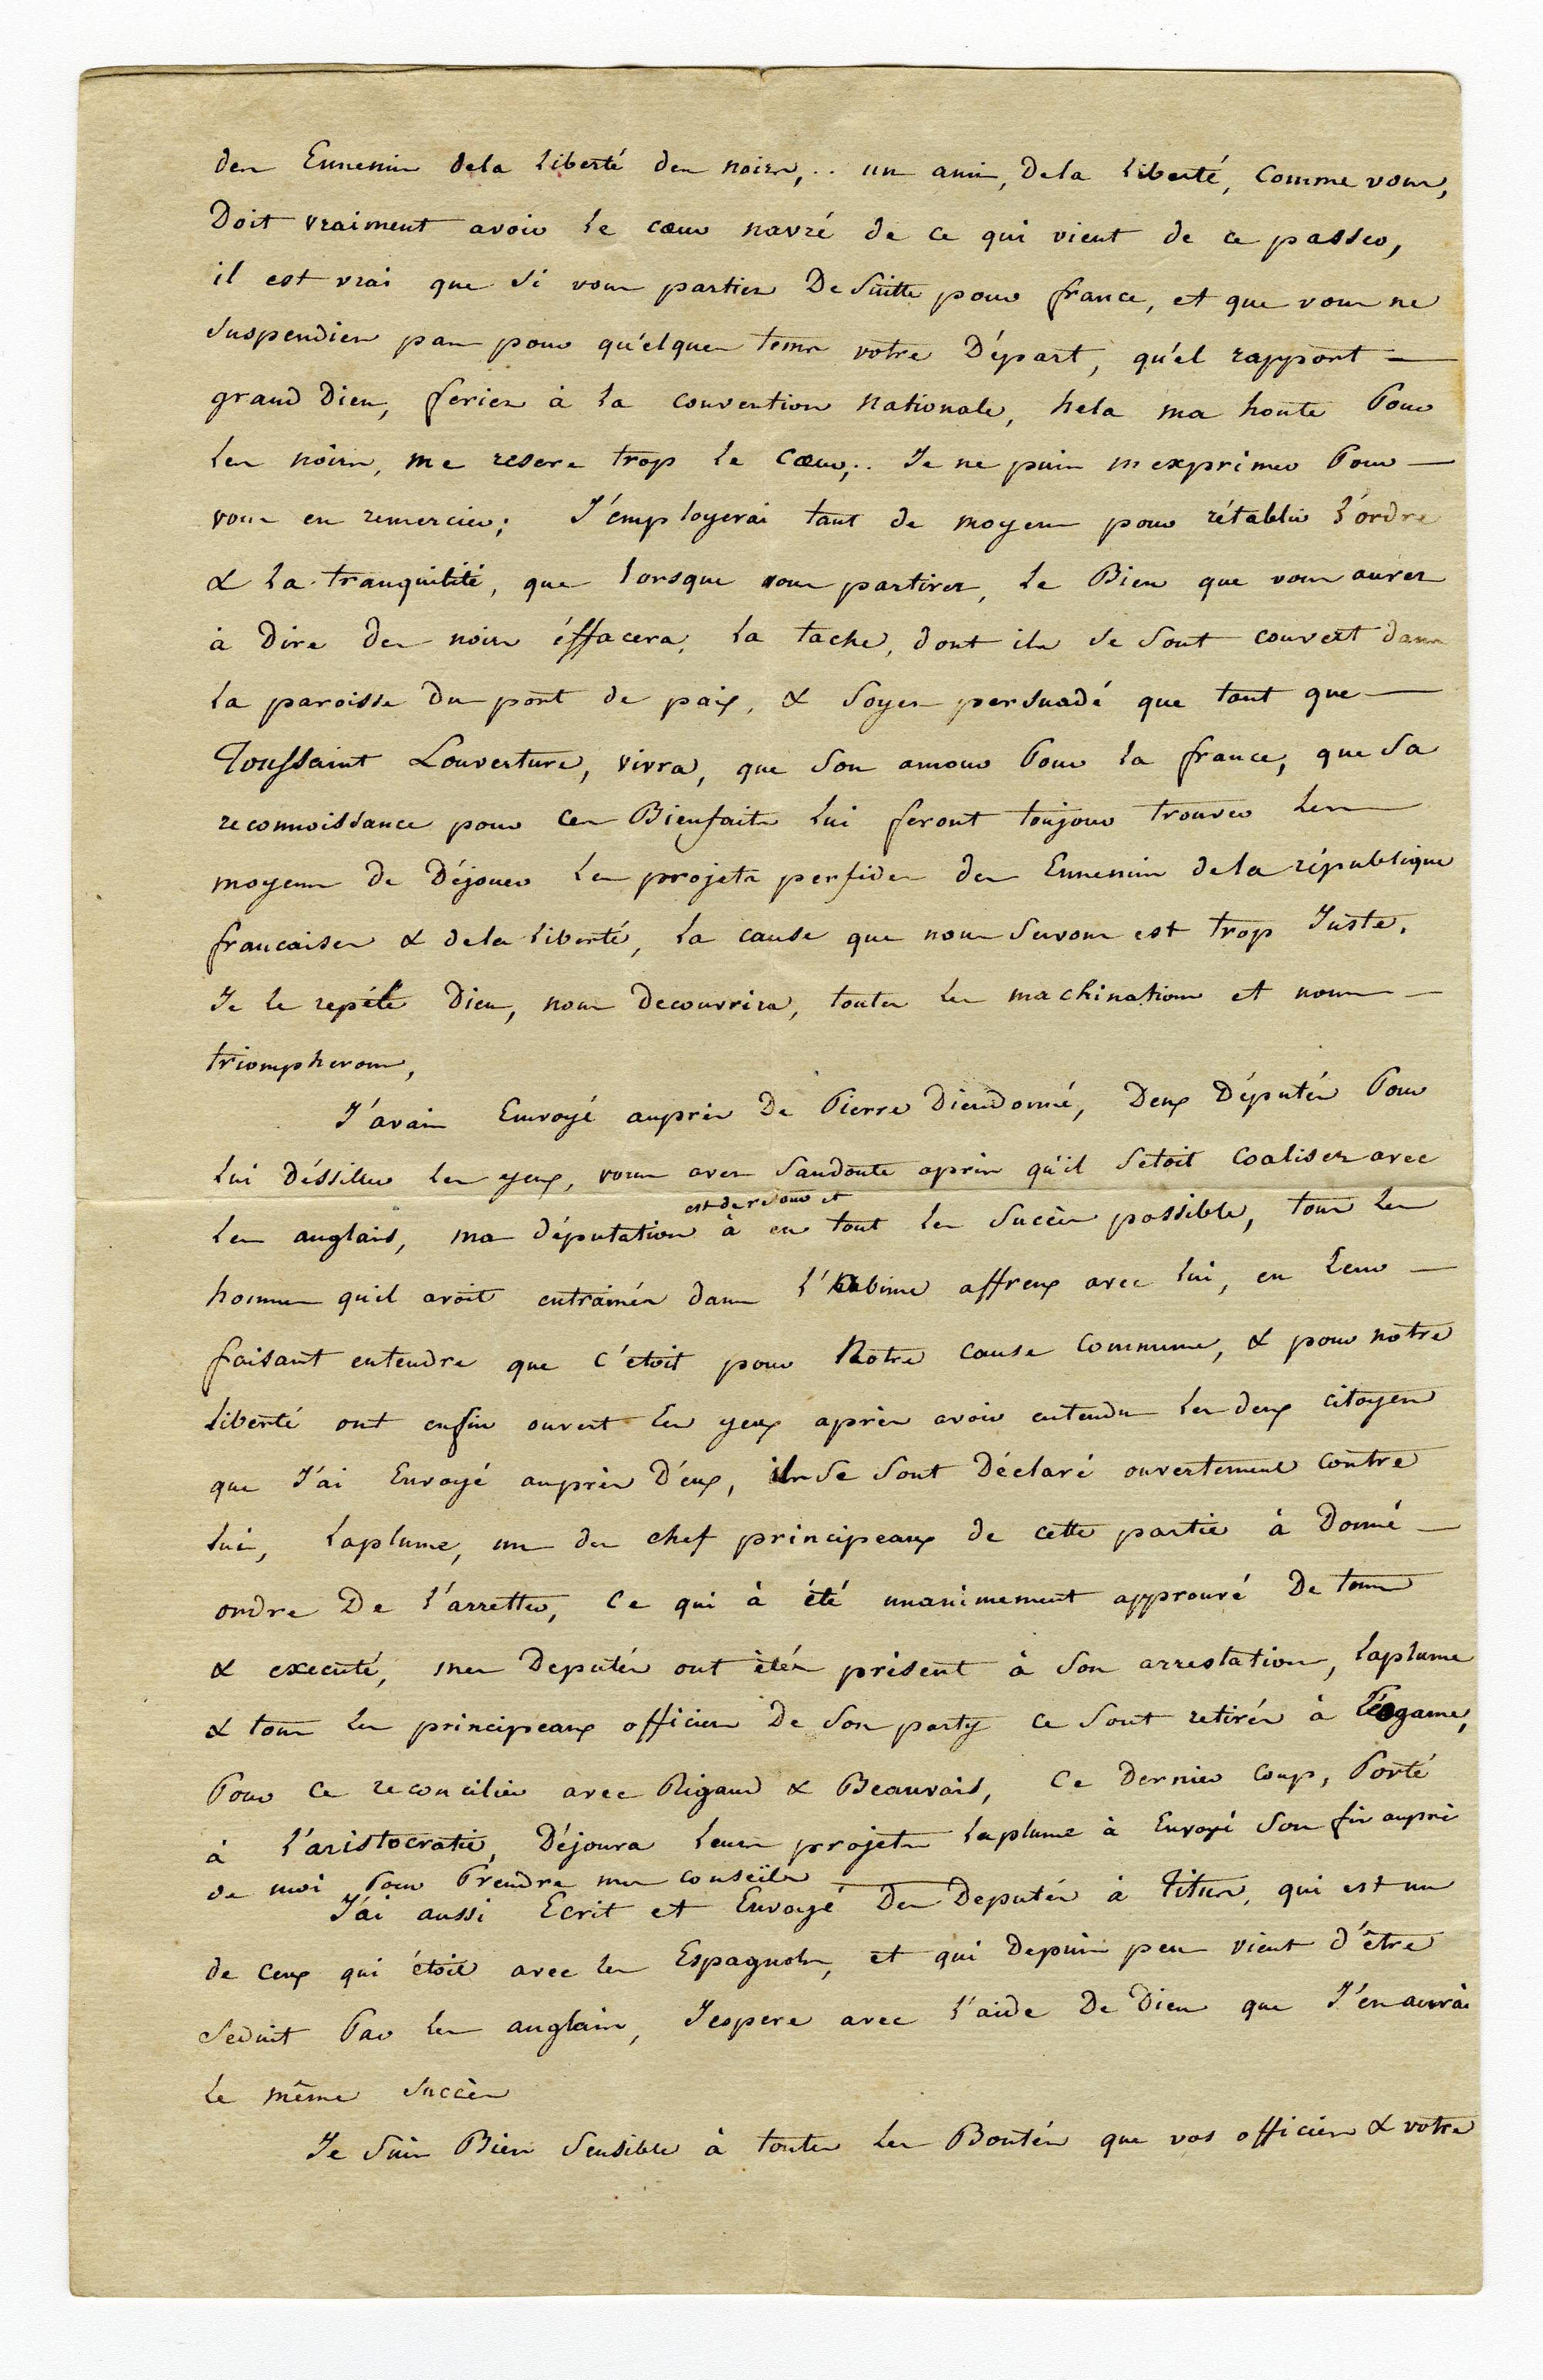 des Ennemis dela liberté des noirs,.. un ami, dela liberté, comme vous,
Doit vraiment avoir le cœur navré de ce qui vient de ce passer,
il est vrai que si vous partiez De Suitte pour france, et que vous ne
Suspendiez pas pour qu'elques tems votre Départ, qu'el rapport —
grand Dieu, feriez à la convention nationale, hela ma honte Pour
les noirs, me resere trop le Cœur,.. Je ne puis mexprimer Pour —
vous en remercier; J'employerai tant de moyens pour rétablir l'ordre
& la tranquilité, que lorsque vous partirez, le Bien que vous aurez
à Dire des noirs éffacera, la tache, dont ils se sont couvert dans
la paroisse Du port de paix, & Soyez persuadé que tant que —
Toussaint Louverture, vivra, que Son amour Pour la france, que Sa
reconnoissance pour ces Bienfaits lui feront toujour trouver les
moyens de Déjouer les projets perfides des Ennemis dela république
francaises & dela liberté, la cause que nous Servons est trop Juste.
Je le repéte Dieu, nous decouvrira, toutes les machinations et nous —
triompherons,
J'avais Envoyé auprès De Pierre Dieudonné, Deux Députés Pour
lui déssiller les yeux, vous avez Sandoute apris qu'il Setoit coalisez avec
est de retour et
les anglais, ma députation à eu tout les Succès possible, tous les
hommes quil avoit entrainés dans l'abime affreux avec lui, en leur —
faisant entendre que c'etoit pour Notre cause commune, & pour notre
liberté ont enfin ouvert les yeux après avoir entendu les deux citoyens
que J'ai Envoyé auprès D'eux, ils Se Sont Déclaré ouvertement contre
lui, laplume, un des chef principeaux de cette partie à Donné —
ordre De l'arretter, ce qui à été unanimement approuvé De tous
& executé, mes Deputés ont étés présent à Son arrestation, laplume
& tous les principeaux officiers De Son party ce Sont retirés à Léogame,
Pour ce reconcilier avec Rigaud & Beauvais, Ce Dernier Coup, Porté
à l'aristocratie, Déjoura leurs projets laplume à Envoyé Son fis auprè
de moi Pour Prendre mes conseils —
J'ai aussi Ecrit et Envoyé Des Deputés à Titus, qui est un
de ceux qui étoit avec les Espagnols, et qui Depuis peu vient d'être
Seduit Par les anglais, Jespere avec l'aide De Dieu que J'en aurai
le même Succès
Je Suis Bien Sensible à toutes les Bontés que vos officiers & votre